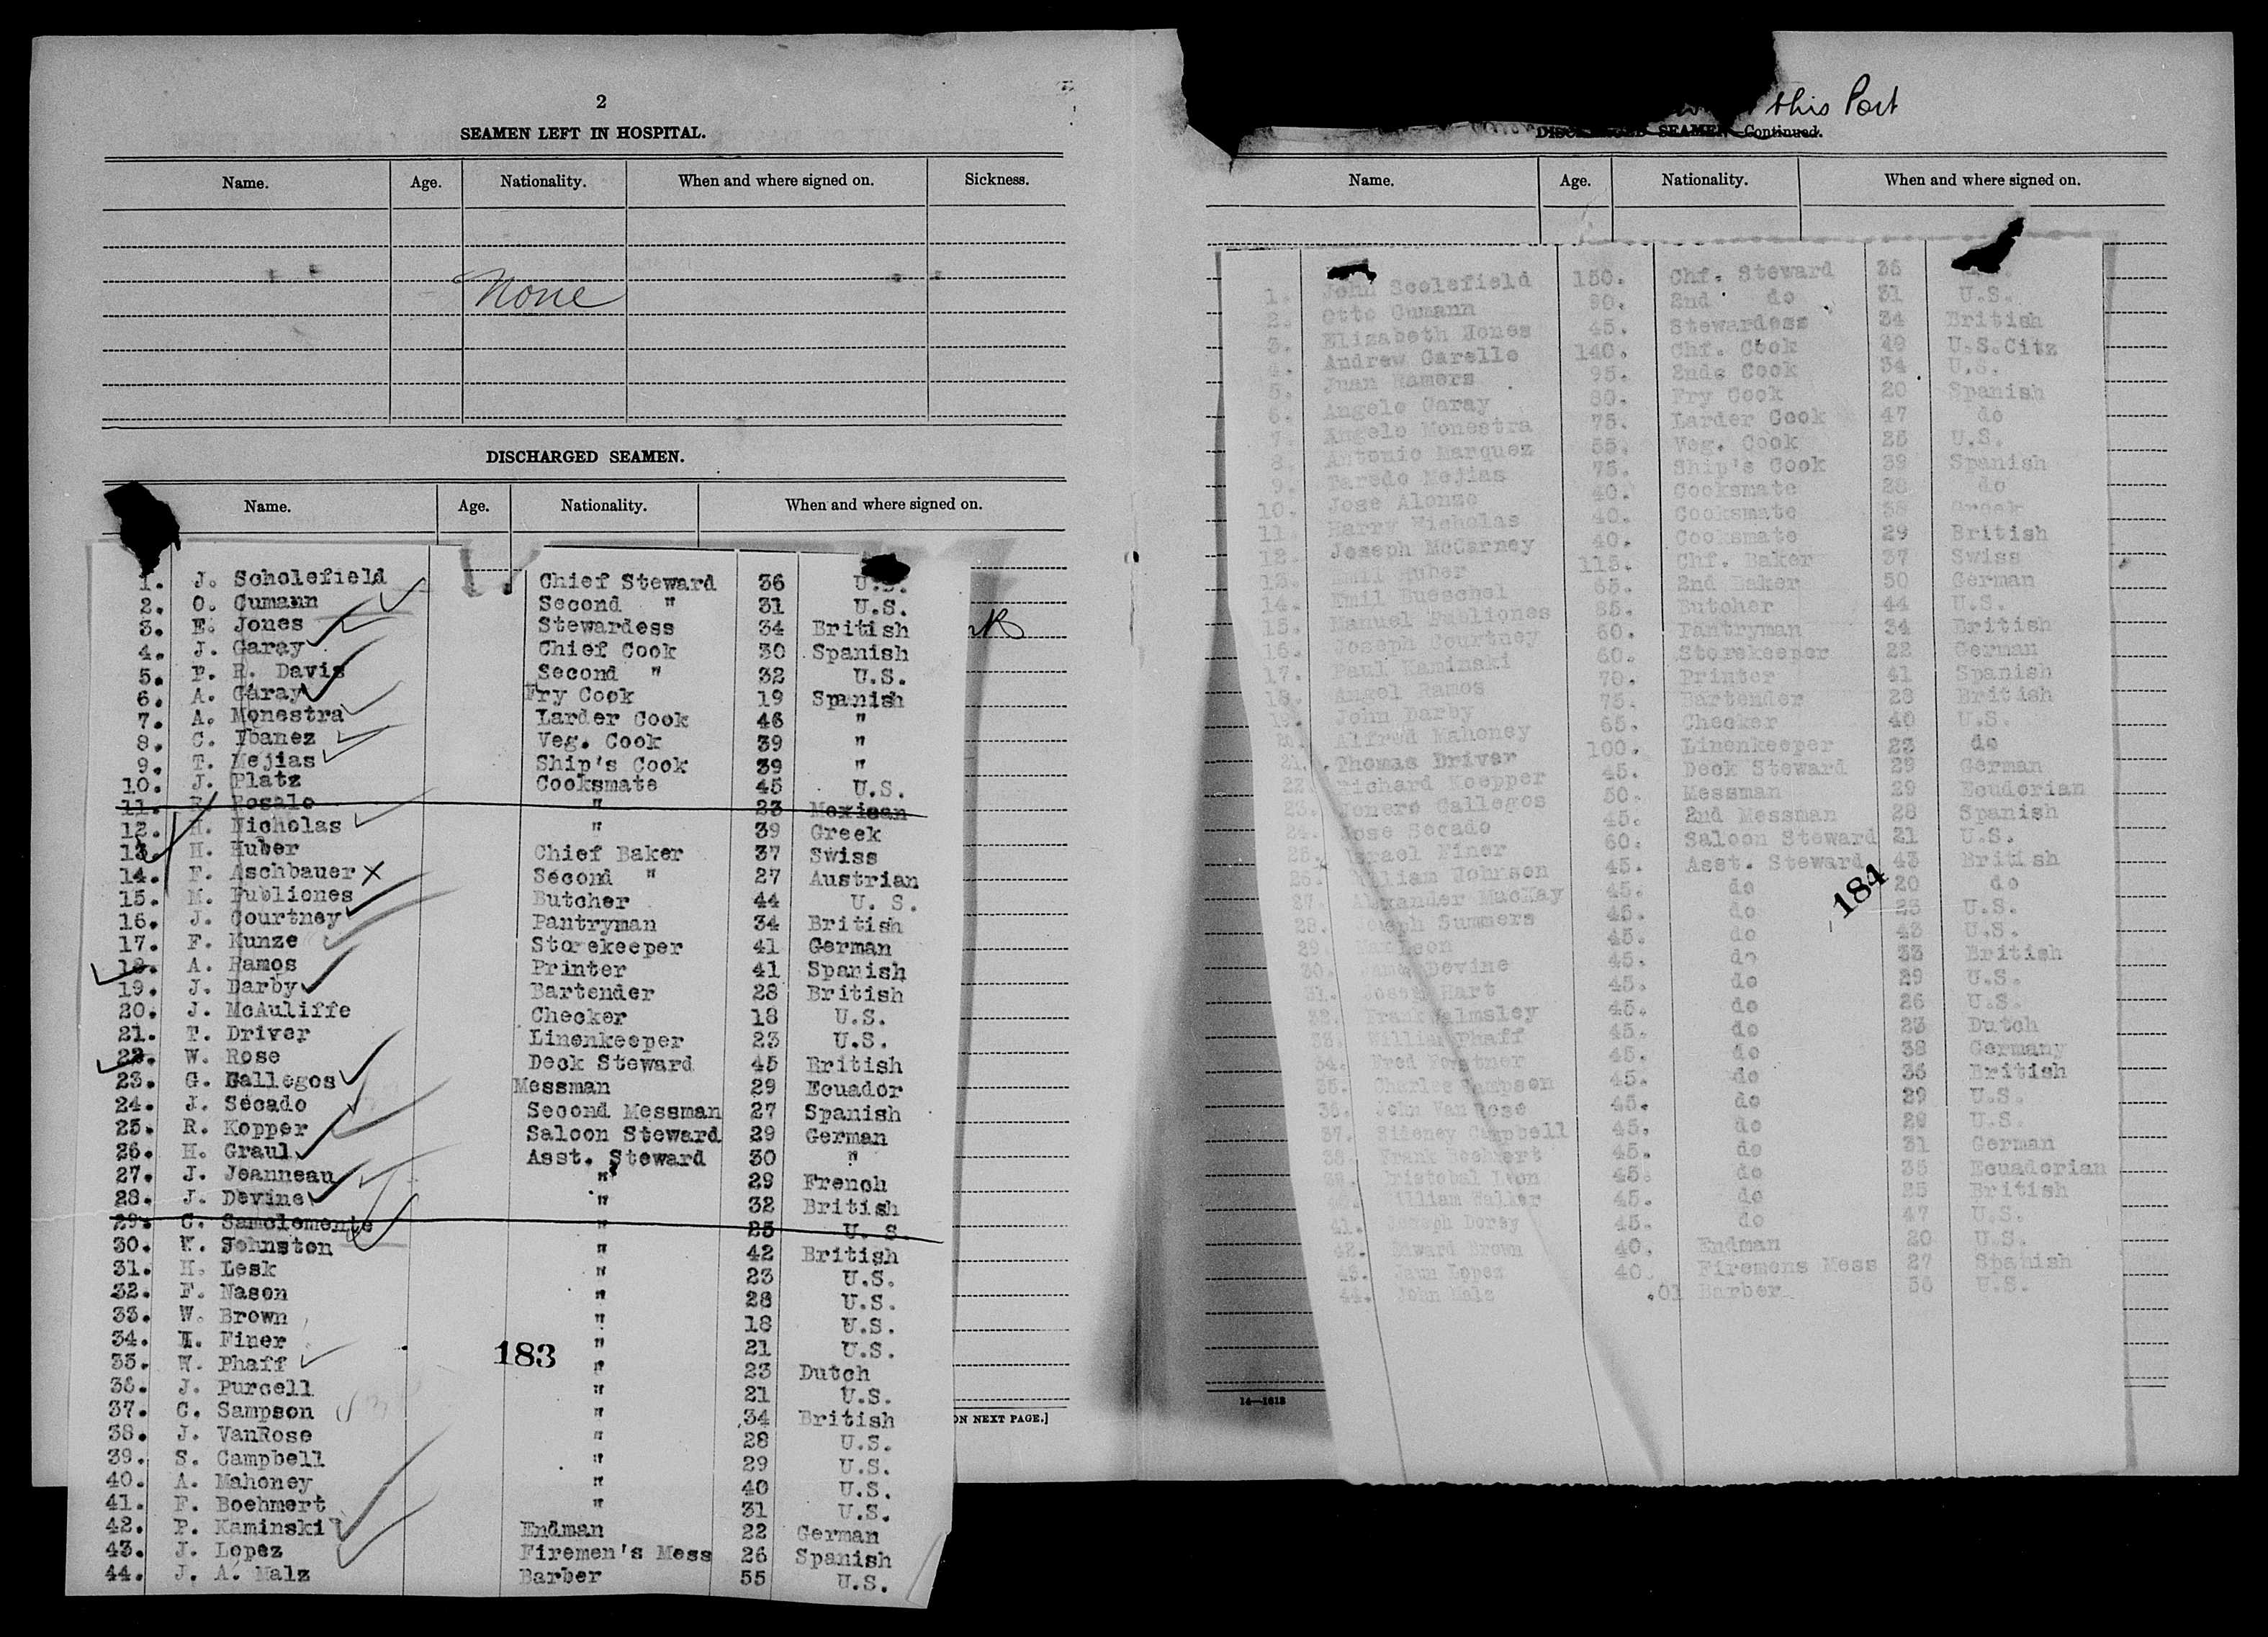 2
SEAMEN LEFT IN HOSPITAL.
Name. Age. Nationality. When and where signed on. Sickness.
None
DISCHARGED SEAMEN.
Name. Age. Nationality. When and where signed on.
1. J. Scholefield Chief Steward 36 U.S.
2. O. Cumann Second " 31 U.S.
3. E. Jones Stewardess 34 British
4. J. Garay Chief Cook 30 Spanish
5. P. R. Davis Second " 32 U.S.
6. A. Garay Fry Cook 19 Spanish
7. A. Monestra Larder Cook 46 "
8. C. Ybanez Veg. Cook 39 "
9. T. Mejias Ship's Cook 39 "
10. J. Platz Cooksmate 45 U.S.
11. R. Rosale " 23 Mexican
12. H. Nicholas " 39 Greek
13. H. Huber Chief Baker 37 Swiss
14. F. Aschbauer X Second " 27 Austrian
15. M. Publiones Butcher 44 U. S.
16. J. Courtney Pantryman 34 British
17. F. Kunze Storekeeper 41 German
18. A. Ramos Printer 41 Spanish
19. J. Darby Bartender 28 British
20. J. McAuliffe Checker 18 U.S.
21. T. Driver Linenkeeper 23 U.S.
22. W. Rose Deck Steward 45 British
23. G. Gallegos Messman 29 Ecuador
24. J. Secado Second Messman 27 Spanish
25. R. Kopper Saloon Steward 29 German
26. H. Graul Asst. Steward 30 "
27. J. Jeanneau " 29 French
28. J. Devine " 32 British
29. C. Samclemente " 25 U. S.
30. W. Johnston " 42 British
31. H. Lesk " 23 U.S.
32. F. Nason " 28 U.S.
33. W. Brown " 18 U.S.
34. I. Finer " 21 U.S.
35. W. Phaff " 23 Dutch
36. J. Purcell " 21 U.S.
37. C. Sampson " 34 British
38. J. VanRose " 28 U.S.
39. S. Campbell " 29 U.S.
40. A. Mahoney " 40 U.S.
41. F. Boehmert " 31 U.S.
42. P. Kaminski Endman 22 German
43. J. Lopez Firemen's Mess 26 Spanish
44. J. A. Malz Barber 55 U.S.
183
ON NEXT PAGE.]
this Port
DISCHARGED SEAMEN—Continued.
Name. Age. Nationality. When and where signed on.
1. John Scolefield 150. Chf. Steward 36
2. Otto Cumann 90. 2nd do 31 U.S.
3. Elizabeth Jones 45. Stewardess 34 British
4. Andrew Carello 140. Chf. Cook 49 U.S.Citz
5. Juan Ramors 95. 2nds Cook 34 U.S.
6. Angelo Garay 80. Fry Cook 20 Spanish
7. Angelo Monestra 75. Larder Cook 47 do
8. Antonio Marquez 55. Veg. Cook 25 U.S.
9. Taredo Mejias 75. Ship's Cook 39 Spanish
10. Jose Alonzo 40. Cooksmate 28 do
11. Harry Nicholas 40. Cooksmate 38 Greek
12. Joseph McCarney 40. Cooksmate 29 British
13. Emil Huber 115. Chf. Baker 37 Swiss
14. Emil Bueschel 65. 2nd Baker 50 German
15. Manuel Publiones 85. Butcher 44 U.S.
16. Joseph Courtney 60. Pantryman 34 British
17. Paul Kaminski 60. Storekeeper 22 German
18. Angel Ramos 70. Printer 41 Spanish
19. John Darby 75. Bartender 28 British
20. Alfred Mahoney 65. Checker 40 U.S.
21. Thomas Driver 100. Linenkeeper 23 do
22. Richard Koepper 45. Deck Steward 29 German
23. Jenero Gallegos 50. Messman 29 Ecudorian
24. Jose Secado 45. 2nd Messman 28 Spanish
25. Israel Finer 60. Saloon Steward 21 U.S.
26. William Johnson 45. Asst. Steward 43 British
27. Alexander MacKay 45. do 20 do
28. Joseph Summers 45. do 23 U.S.
29. Leon 45. do 43 U.S.
30. James Devine 45. do 33 British
31. Joseph Hart 45. do 29 U.S.
32. Frank Walmsley 45. do 26 U.S.
33. William Phaff 45. do 23 Dutch
34. Fred Forstner 45. do 38 Germany
35. Charles Sampson 45. do 35 British
36. John Van Rose 45. do 29 U.S.
37. Sidney Campbell 45. do 29 U.S.
38. Frank Boehmert 45. do 31 German
39. Cristobal Leon 45. do 35 Ecuadorian
40. William Walker 45. do 25 British
41. Joseph Dorey 45. do 47 U.S.
42. Edward Brown 40. Endman 20 U.S.
43. Jaun Lopez 40. Firemens Mess 27 Spanish
44. John Malz .01 Barber 56 U.S.
184
14—1612